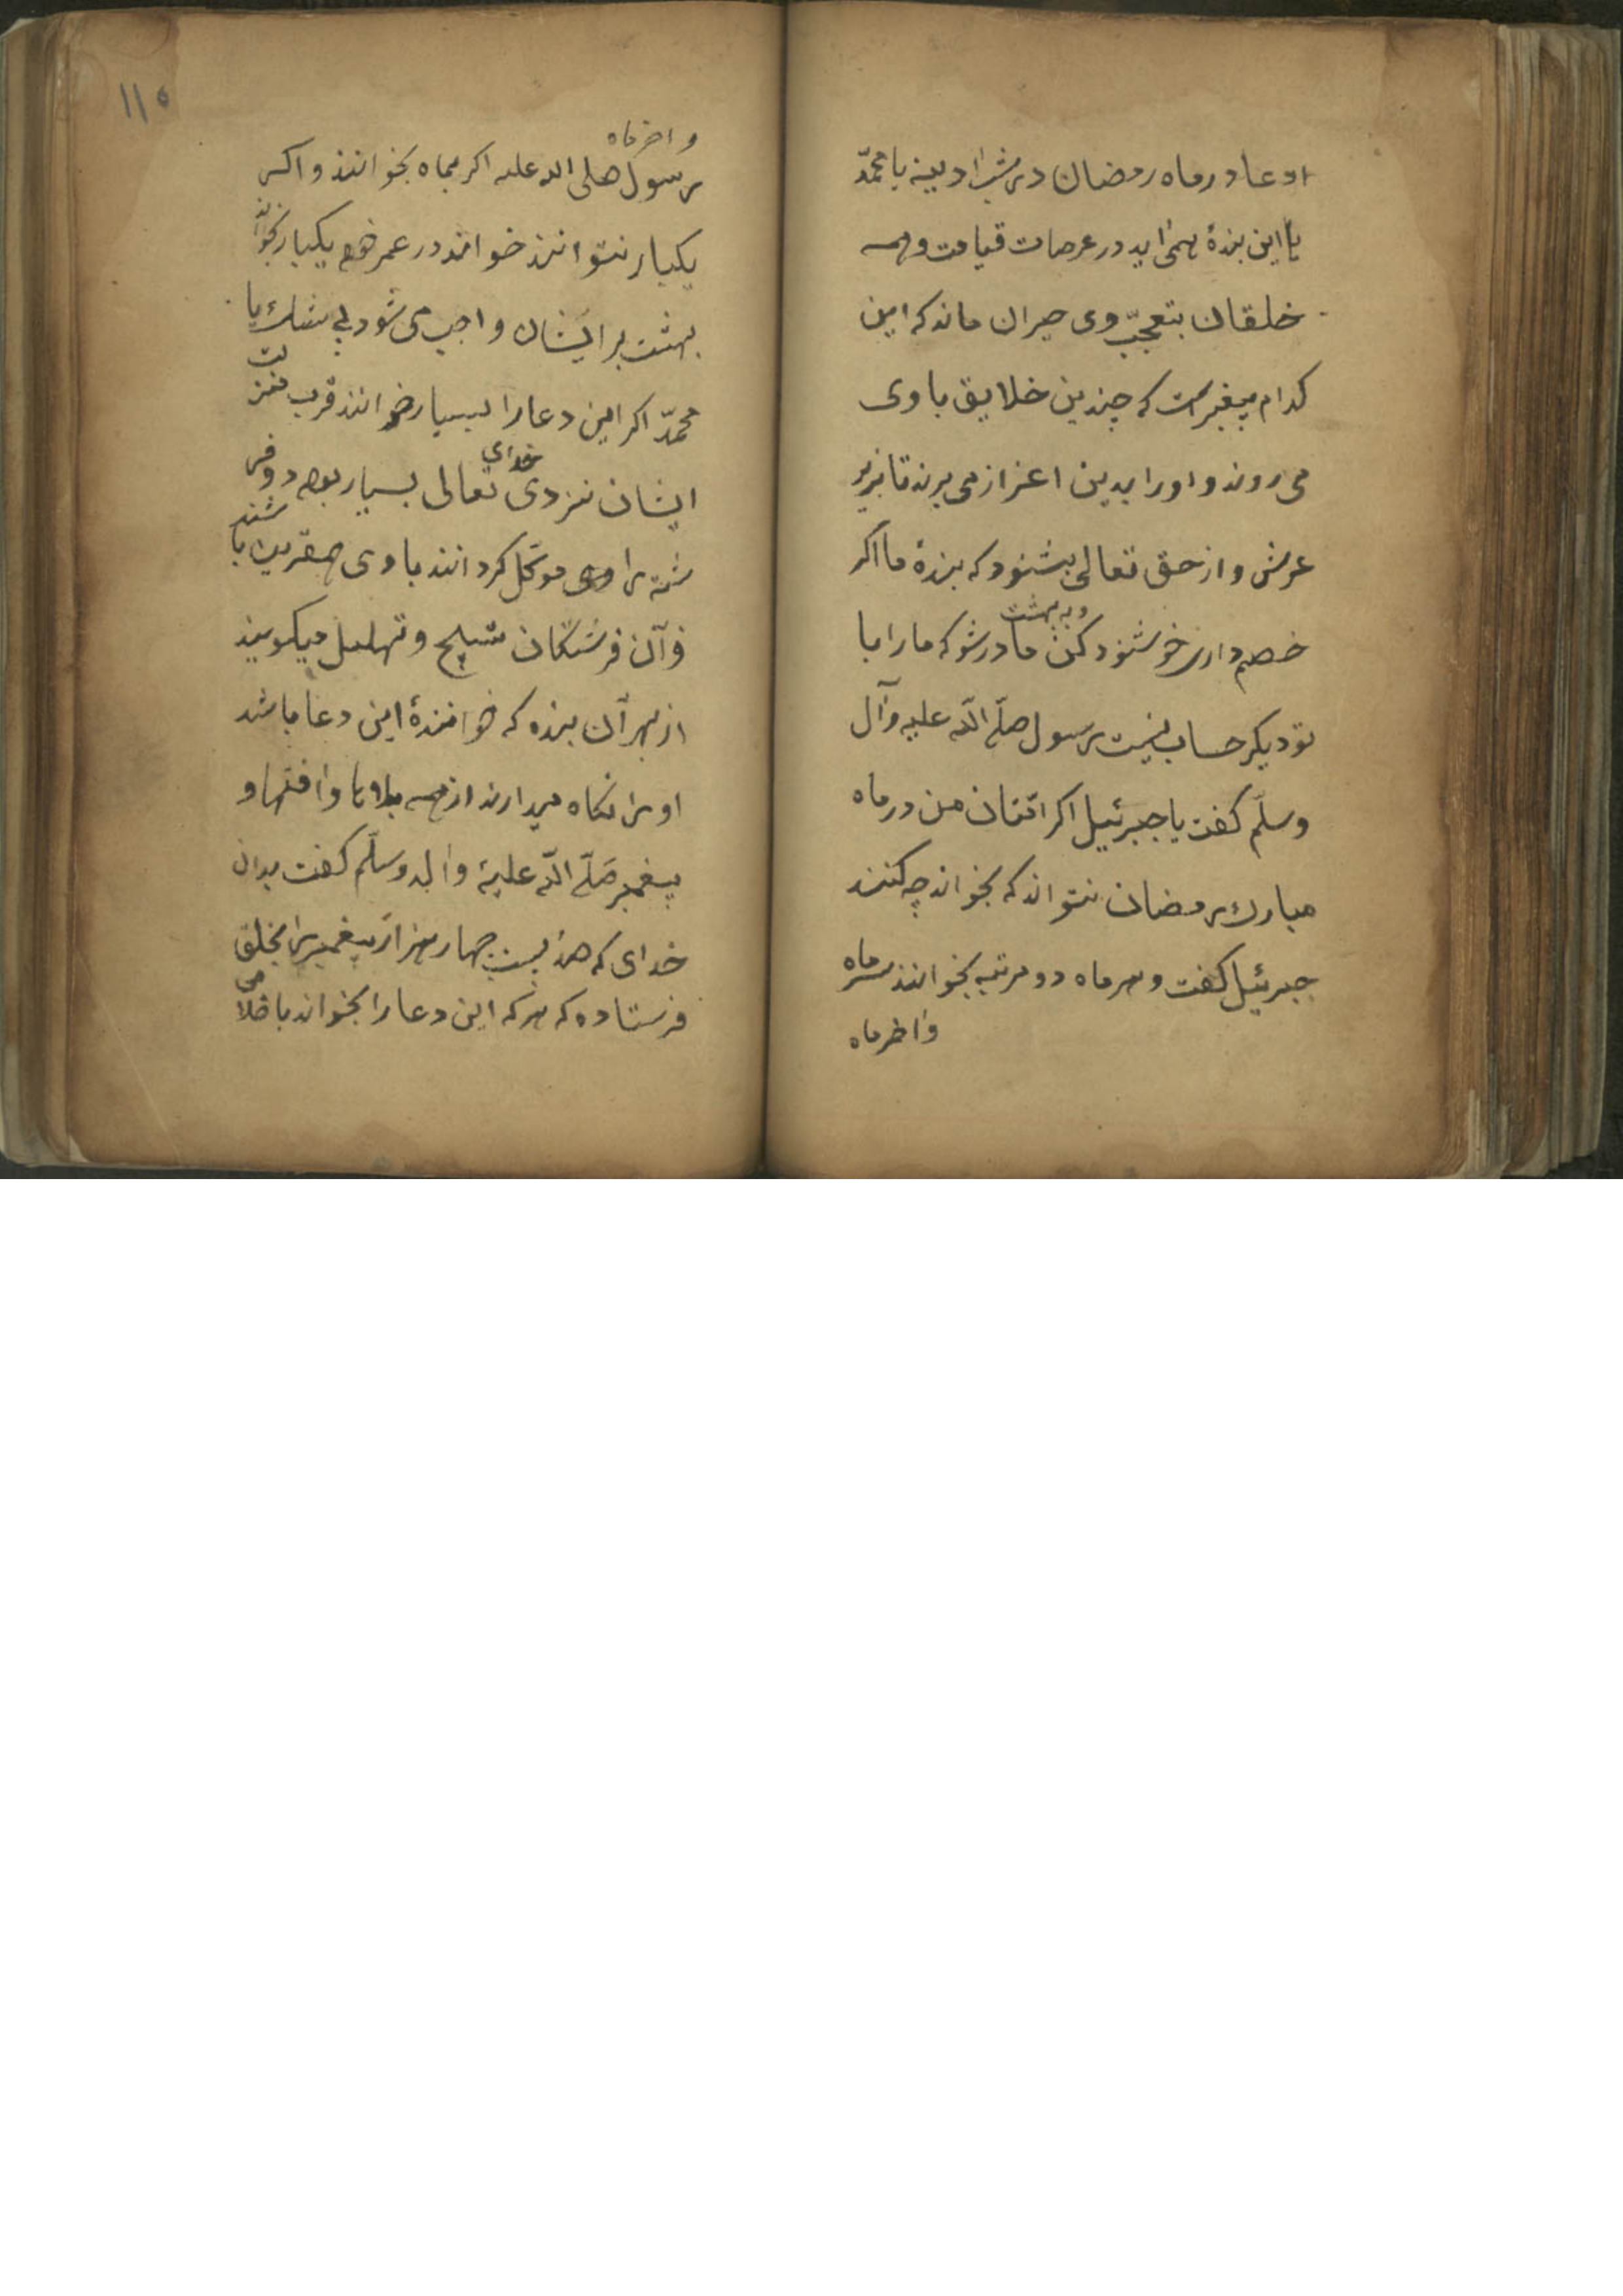 دعا در ماه رمضان در شب ادینه یا محمّد
با این بندهٔ همی اید در عرصات قیامت و همه
خلقان بتعجّب وی حیران ماند که این
کدام پیغبر است که چندین خلایق با وی
می روند و او را بدین اعزاز می برند تا بزیر
عرش و از حق تعالی بشنود که بندهٔ ما اکر
خصم داری خوشنود کن ما در شو که ما را با
و به بهشت
تو دیکر حساب نیست رسول صلّی اللّه علیه و آل
وسلّم کفت یا جبرئیل اکر امّتان من در ماه
مبارک رمضان نتواند که بخواند چه کنند
جبرئیل کفت و هر ماه دو مرتبه بخوانند سر ماه
و اخر ماه
۱۱۵
و اخر ماه
رسول صلی الله علیه اکر بماه بخوانند و اکر
یکبار نتوانند خواند در عمر خود یکبار بخوانند
بهشت بر ایشان واجب می شود بی شک یا
محمّد اکر این دعا را بسیار خوانند قرب منزلت
ایشان نزدی خدای تعالی بسیار بود و فر
شته را وی موکّل کردانند با وی مقرین باشند
و آن فرشتکان تسبیح و تهلیل میکویند
از بهر آن بنده که خوانندهٔ این دعا باشد
او را نکاه میدارند از همه بلاها و افتها و
پیغمبر صَلّی اللّه علیهٔ و اله وسلّم کفت بدان
خدای که صد بیست چهار هزار پیغمبر را بخلق
فرستاده که هر که این دعا را بخواند باخلا